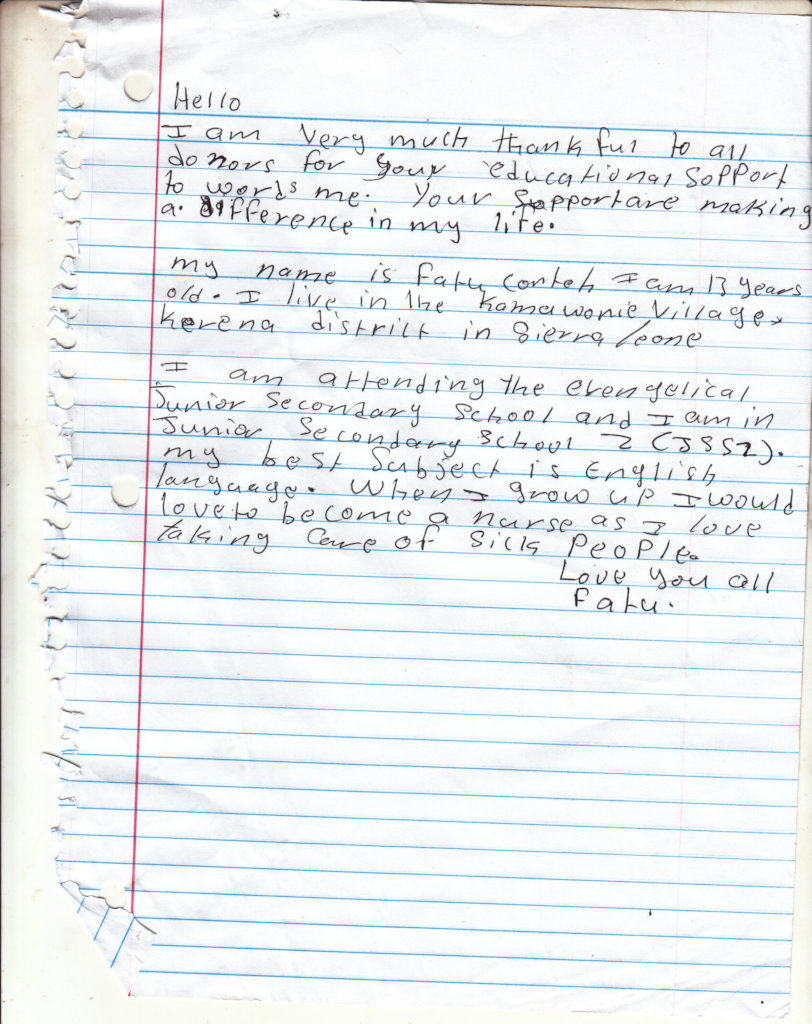 Hello
I am very much thankful to all
donors for your educational sopport
to words me. Your supportare making
a. difference in my life.
my name is fatu conteh I am 13 years
old. I live in the Kamawonie Village,
Kerena district in Sierra leone
I am attending the evengelical
Junior Secondary School and I am in
Junior Secondary School 2 (JSS2).
my best Subject is English
language. When I grow up I would
love to become a nurse as I love
taking Care of Sick People.
Love you all
fatu.